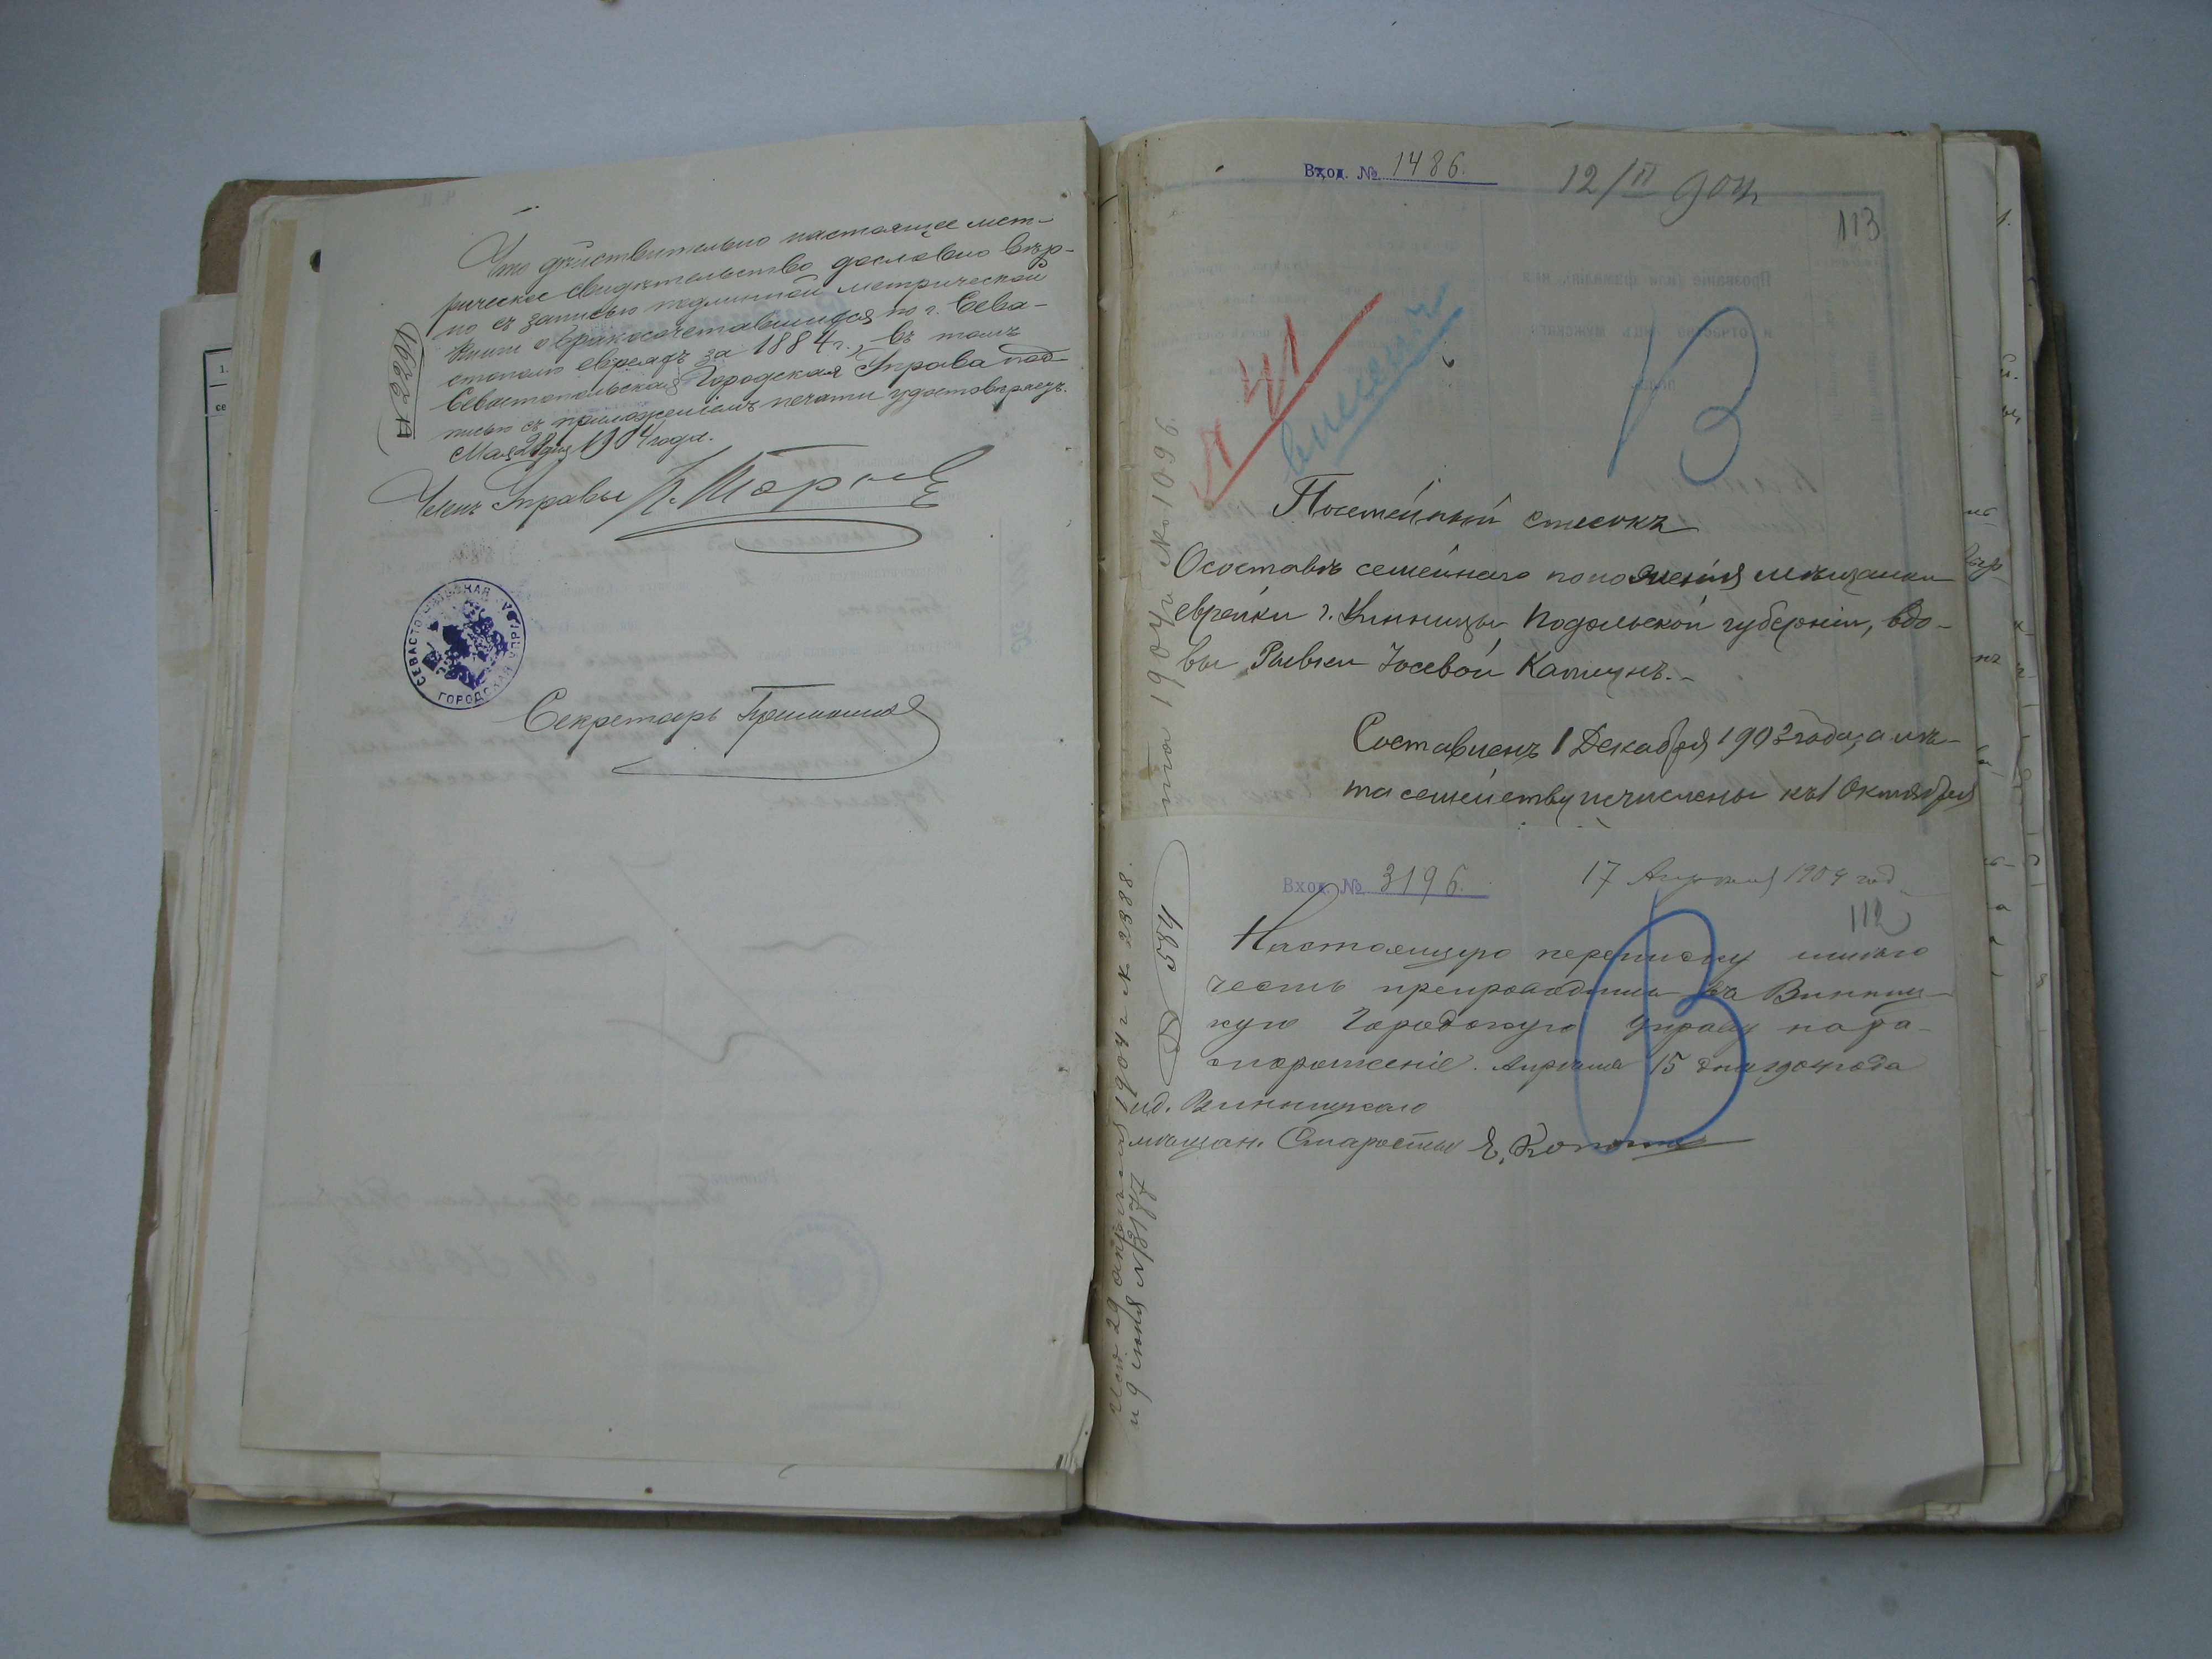 Что действительно настоящее мет-
рическое свидѣтельство дословно вѣр-
но съ записью подлинной метрической
книги о бракосочетавшихся по г. Сева-
стополю евреяхъ за 1884 г., въ томъ
Севастопольская Городская Управа под-
писью съ приложеніемъ печати удостовѣряетъ.
Мая 28 дня 1904 года.
№ 2261
Членъ Управы
СЕВАСТОПОЛЬСКАЯ ГОРОДСКАЯ УПРАВА
Секретарь
Вход. № 1486.
12/II 904 г.
113
№ 41
внесенъ
В
Посемейный списокъ
О составѣ семейнаго положенія мѣщанки
еврейки г. Винницы Подольской губерніи, вдо-
вы Рывки Іосевой Капицнъ.-
Составленъ 1 Декабря 1903 года, а лѣ-
та семейству исчислены къ 1 Октября
1904 г. № 1096.
Вход. № 3196.
17 Апрѣля 1904 год
112
В
Настоящую переписку имѣю
честь препроводить въ Винниц-
кую Городскую Управу на ра-
споряженіе. Апрѣля 15 дня 1904 года
ид. Винницкаго
мѣщан. Старосты
№ 584
Исп. 29 апрѣля 1904 г. № 2388.
и 9 июня № 3177